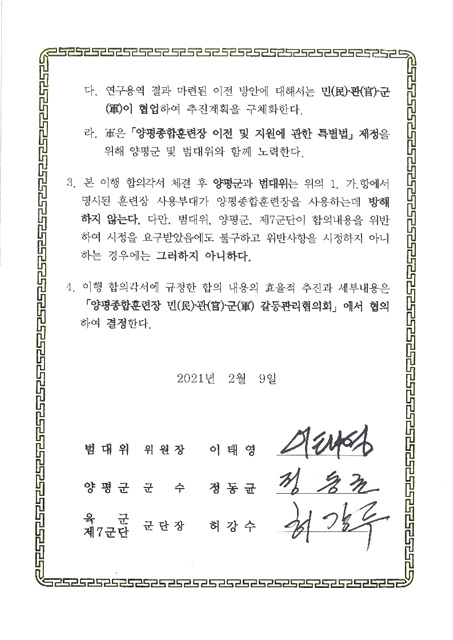 다. 연구용역 결과 마련된 이전 방안에 대해서는 민(民)·관(官)·군
(軍)이 협업하여 추진계획을 구체화한다.
라. 軍은 「양평종합훈련장 이전 및 지원에 관한 특별법」 제정을
위해 양평군 및 범대위와 함께 노력한다.
3. 본 이행 합의각서 체결 후 양평군과 범대위는 위의 1. 가.항에서
명시된 훈련장 사용부대가 양평종합훈련장을 사용하는데 방해
하지 않는다. 다만, 범대위, 양평군, 제7군단이 합의내용을 위반
하여 시정을 요구받았음에도 불구하고 위반사항을 시정하지 아니
하는 경우에는 그러하지 아니하다.
4. 이행 합의각서에 규정한 합의 내용의 효율적 추진과 세부내용은
「양평종합훈련장 민(民)·관(官)·군(軍) 갈등관리협의회」에서 협의
하여 결정한다.
2021년 2월 9일
범대위 위원장 이태영 이태영
양평군 군 수 정동균 정동균
육 군
제7군단 군단장 허강수 허강수